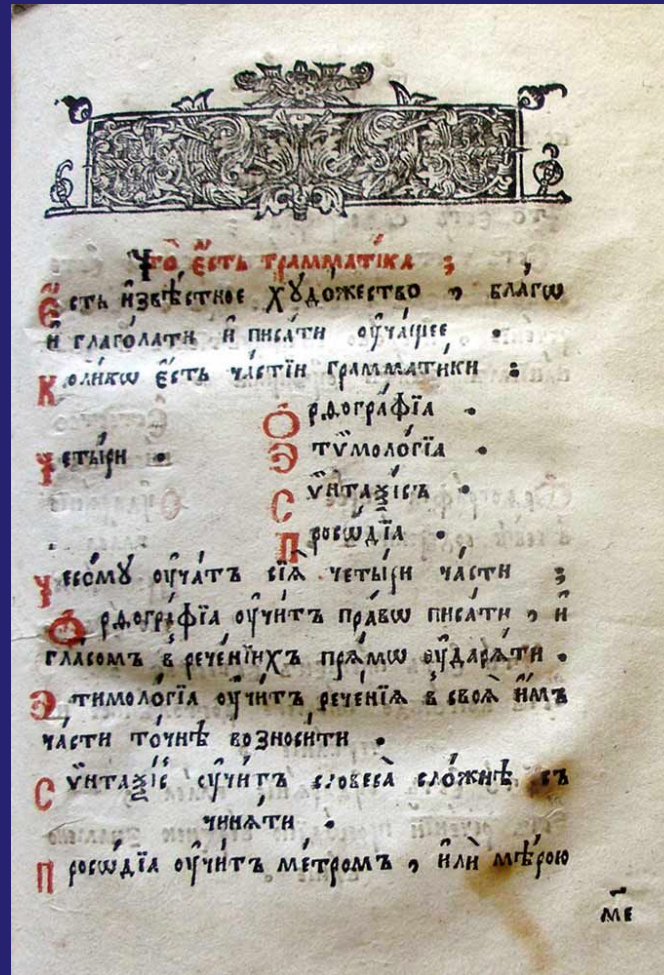 Что̀ є҆́сть грамма́тїка ;
Є҆́сть и҆звѣ́стное хꙋдо́жество , бла́гѡ
и҆ глаго́лати и҆ писа́ти ᲂу҆ча́щее .
Коли́кѡ є҆́сть ча́стїй грамма́тїки :
Ѻ҆рѳогра́фїа .
Четы́ри . Э҆тѷмоло́гїа .
Сѵ́нтаѯїсъ .
Просѡ́дїа .
Чесомꙋ̀ ᲂу҆ча́тъ сїѧ̑ четы́ри ча̑сти ;
Ѻ҆рѳогра́фїа ᲂу҆чи́тъ пра́вѡ писа́ти , и҆
гла́сомъ в̾ рече́нїихъ прѧ́мѡ ᲂу҆дарѧ́ти .
Э҆тимоло́гїа ᲂу҆чи́тъ рече́нїѧ в̾ своѧ̑ и҆̀мъ
ча̑сти то́чнѣ возноси́ти .
Сѵ́нтаѯїс ᲂу҆чи́тъ словеса̀ сло́жнѣ съ
чинѧ́ти .
Просѡ́дїа ᲂу҆чи́тъ ме́тромъ , и҆лѝ мѣ́рою
ме